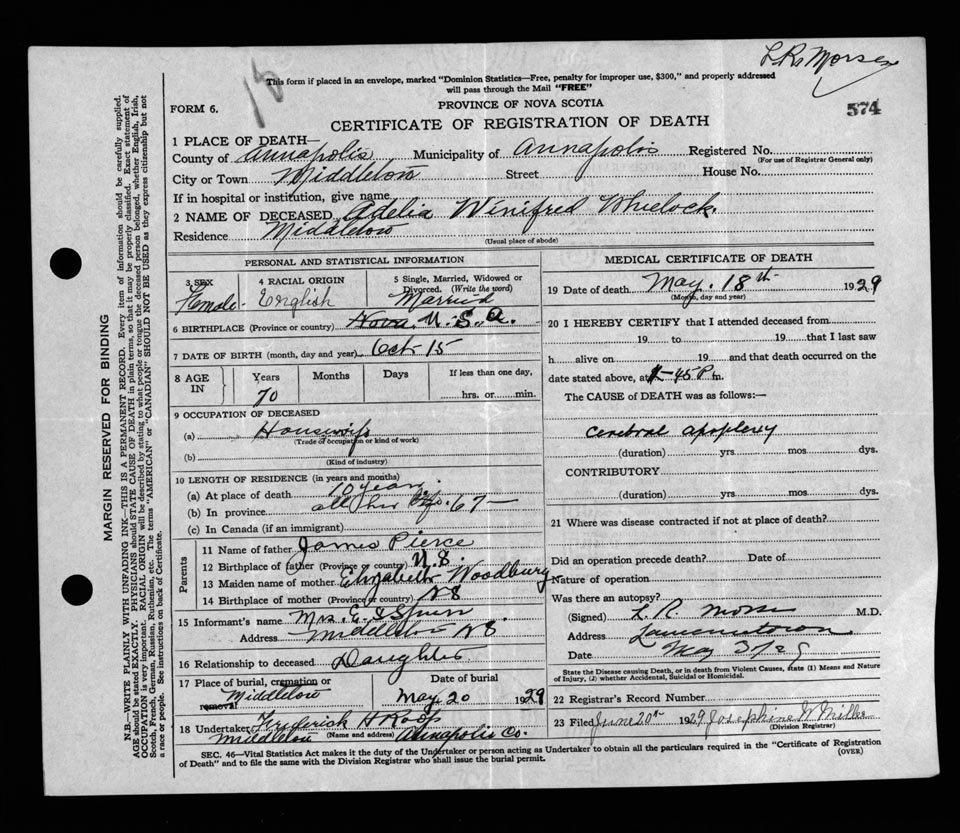 L R Morse
15
This form if placed in an envelope, marked "Dominion Statistics—Free, penalty for improper use, $300," and properly addressed
will pass through the Mail "FREE"
574
FORM 6.
PROVINCE OF NOVA SCOTIA
CERTIFICATE OF REGISTRATION OF DEATH
1 PLACE OF DEATH—
County of Annapolis Municipality of Annapolis Registered No.
(For use of Registrar General only)
City or Town Middleton Street House No.
If in hospital or institution, give name
2 NAME OF DECEASED Adelia Winifred Wheelock
Residence Middleton
(Usual place of abode)
PERSONAL AND STATISTICAL INFORMATION
3 SEX
Female
4 RACIAL ORIGIN
English
5 Single, Married, Widowed or
Divorced. (Write the word)
Married
6 BIRTHPLACE (Province or country) Nova U.S.A.
7 DATE OF BIRTH (month, day and year) Oct 15
8 AGE
IN
Years
70
Months
Days
If less than one day,
hrs. or min.
9 OCCUPATION OF DECEASED
(a) Housewife
(Trade of occupation or kind of work)
(b)
(Kind of industry)
10 LENGTH OF RESIDENCE (in years and months)
(a) At place of death 10 years
(b) In province all her life. 67—
(c) In Canada (if an immigrant)
Parents
11 Name of father James Pierce
12 Birthplace of father (Province or country) N.S.
13 Maiden name of mother Elizabeth Woodbury
14 Birthplace of mother (Province or country) N S
15 Informant's name Mrs. E.
Address Middleton N S.
16 Relationship to deceased Daughter
17 Place of burial, cremation or
removal Middleton
Date of burial
May 20 1929
18 Undertaker Frederick H Roop
Middleton (Name and address) Annapolis Co.
MEDICAL CERTIFICATE OF DEATH
19 Date of death May. 18th 1929
(Month, day and year)
20 I HEREBY CERTIFY that I attended deceased from
19 to 19 that I last saw
h alive on 19 and that death occurred on the
date stated above, at -45 P m.
The CAUSE of DEATH was as follows:—
Cerebral apoplexy
(duration) yrs mos dys.
CONTRIBUTORY
(duration) yrs. mos. dys.
21 Where was disease contracted if not at place of death?
Did an operation precede death? Date of
Nature of operation
Was there an autopsy?
(Signed) L. R. Morse M.D.
Address Lawrencetown
Date May
State the Disease causing Death, or in death from Violent Causes, state (1) Means and Nature
of Injury, (2) whether Accidental, Suicidal or Homicidal.
22 Registrar's Record Number
23 Filed June 20th 1929 Josephine W Miller
(Division Registrar)
SEC. 46—Vital Statistics Act makes it the duty of the Undertaker or person acting as Undertaker to obtain all the particulars required in the "Certificate of Registration
of Death" and to file the same with the Division Registrar who shall issue the burial permit.
(OVER)
MARGIN RESERVED FOR BINDING
N.B.—WRITE PLAINLY WITH UNFADING INK—THIS IS A PERMANENT RECORD. Every item of information should be carefully supplied.
AGE should be stated EXACTLY. PHYSICIANS should STATE CAUSE OF DEATH in plain terms, so that it may be properly classified. Exact statement of
OCCUPATION is very important. RACIAL ORIGIN will be described by stating to what people or tongue the deceased person belonged, whether English, Irish,
Scotch, French, German, Russian, Ruthenian, etc. The terms "AMERICAN" or "CANADIAN" SHOULD NOT BE USED as they express citizenship but not
a race or people. See instructions on back of Certificate.